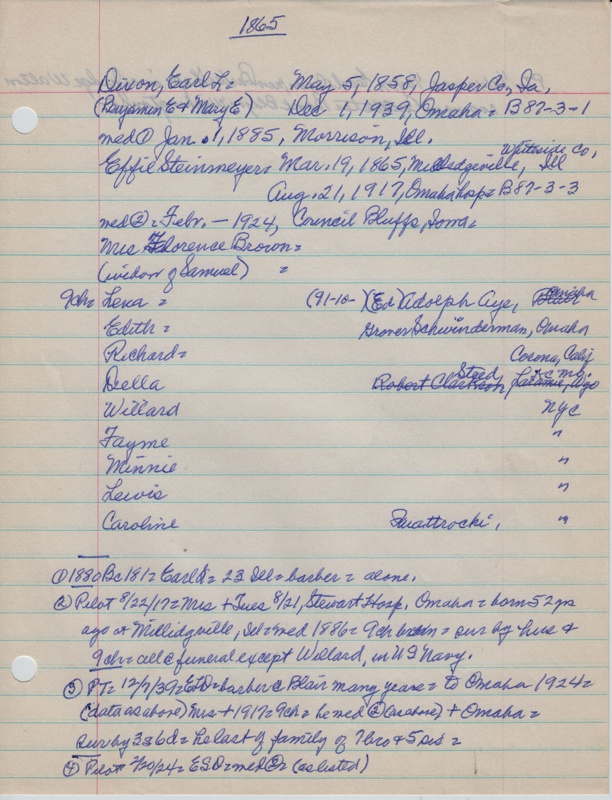 1865
Dixon, Earl L = May 5, 1858, Jasper Co, Ia.
(Benjamin E + Mary E) Dec 1, 1939, Omaha = B87-3-1
med ① Jan. 1, 1885, Morrison, Ill.
Whiteside Co,
Effie Steinmeyer = Mar. 19, 1865, Milledgeville, Ill
Aug. 21, 1917, Omaha hosp = B87-3-3
med ② = Febr. — 1924, Council Bluffs, Iowa =
Mrs Florence Brown =
(widow of Samuel) =
9ch = Lexa = (91-10- )(Ed) Adolph Aye, Omaha
Edith = Grover Schwinderman, Omaha
Richard = Corona, Calif
Della Robert Clarkson, Steed, Laramie, Wyo K C Mo.
Willard NYC
Fayme "
Minnie "
Lewis "
Caroline Quattrocki, "
① 1880 Bc 181 = Earl D = 23 Ill = barber = alone.
② Pilot 8/22/17 = Mrs + Tues 8/21, Stewart Hosp, Omaha = born 52 yrs
ago at Millidgville, Ill = med 1886 = 9ch born = sur by hus +
9ch = all @ funeral except Willard, in US Navy.
③ PT = 12/7/39 = ELD = barber @ Blair many years = to Omaha 1924 =
(data as above) Mrs + 1917 = 9ch = he med ② (as above) + Omaha =
sur by 3s 6d = he last of family of 7 bro + 5 sis =
④ Pilot 2/20/24 = ESD = med ② = (as listed)